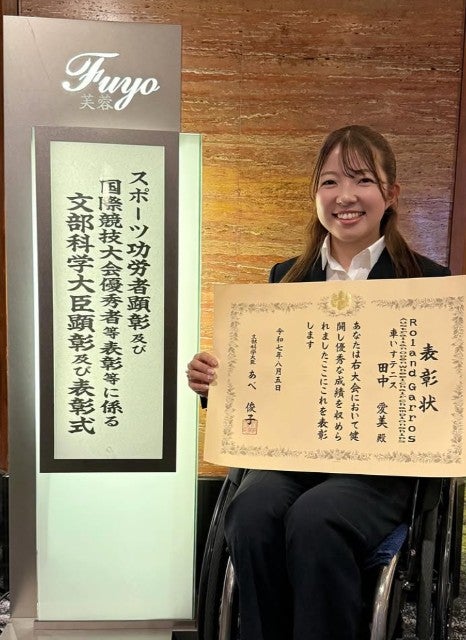 Fuyo
芙蓉
スポーツ功労者顕彰及び
国際競技大会優秀者等表彰等に係る
文部科学大臣顕彰及び表彰式
表彰状
Roland Garros
車いすテニス
田中 愛美 殿
あなたは右大会において健
闘し優秀な成績を収めら
れましたここにこれを表彰
します
令和七年八月五日
文部科学大臣 あべ 俊子